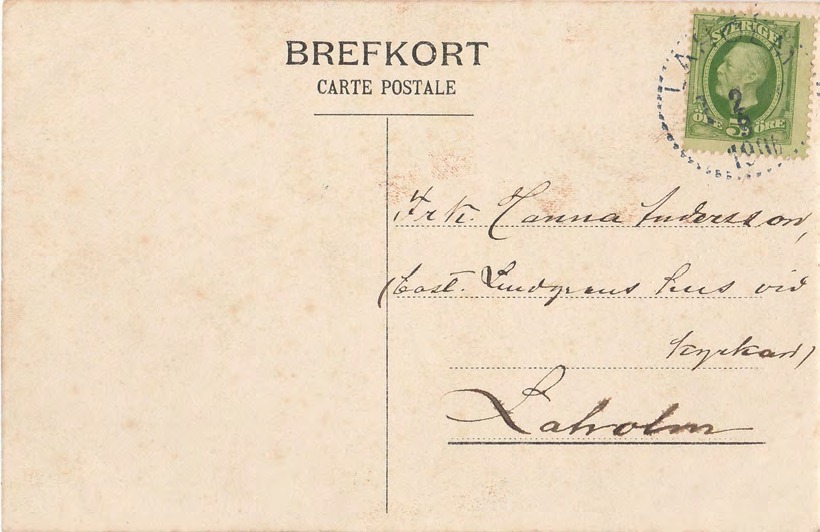 BREFKORT
CARTE POSTALE
SVERIGE
ÖRE 5 ÖRE
2
1906
Frk. Hanna Andersson,
(Cast. Lindgrens hus vid
kyrkan)
Laholm